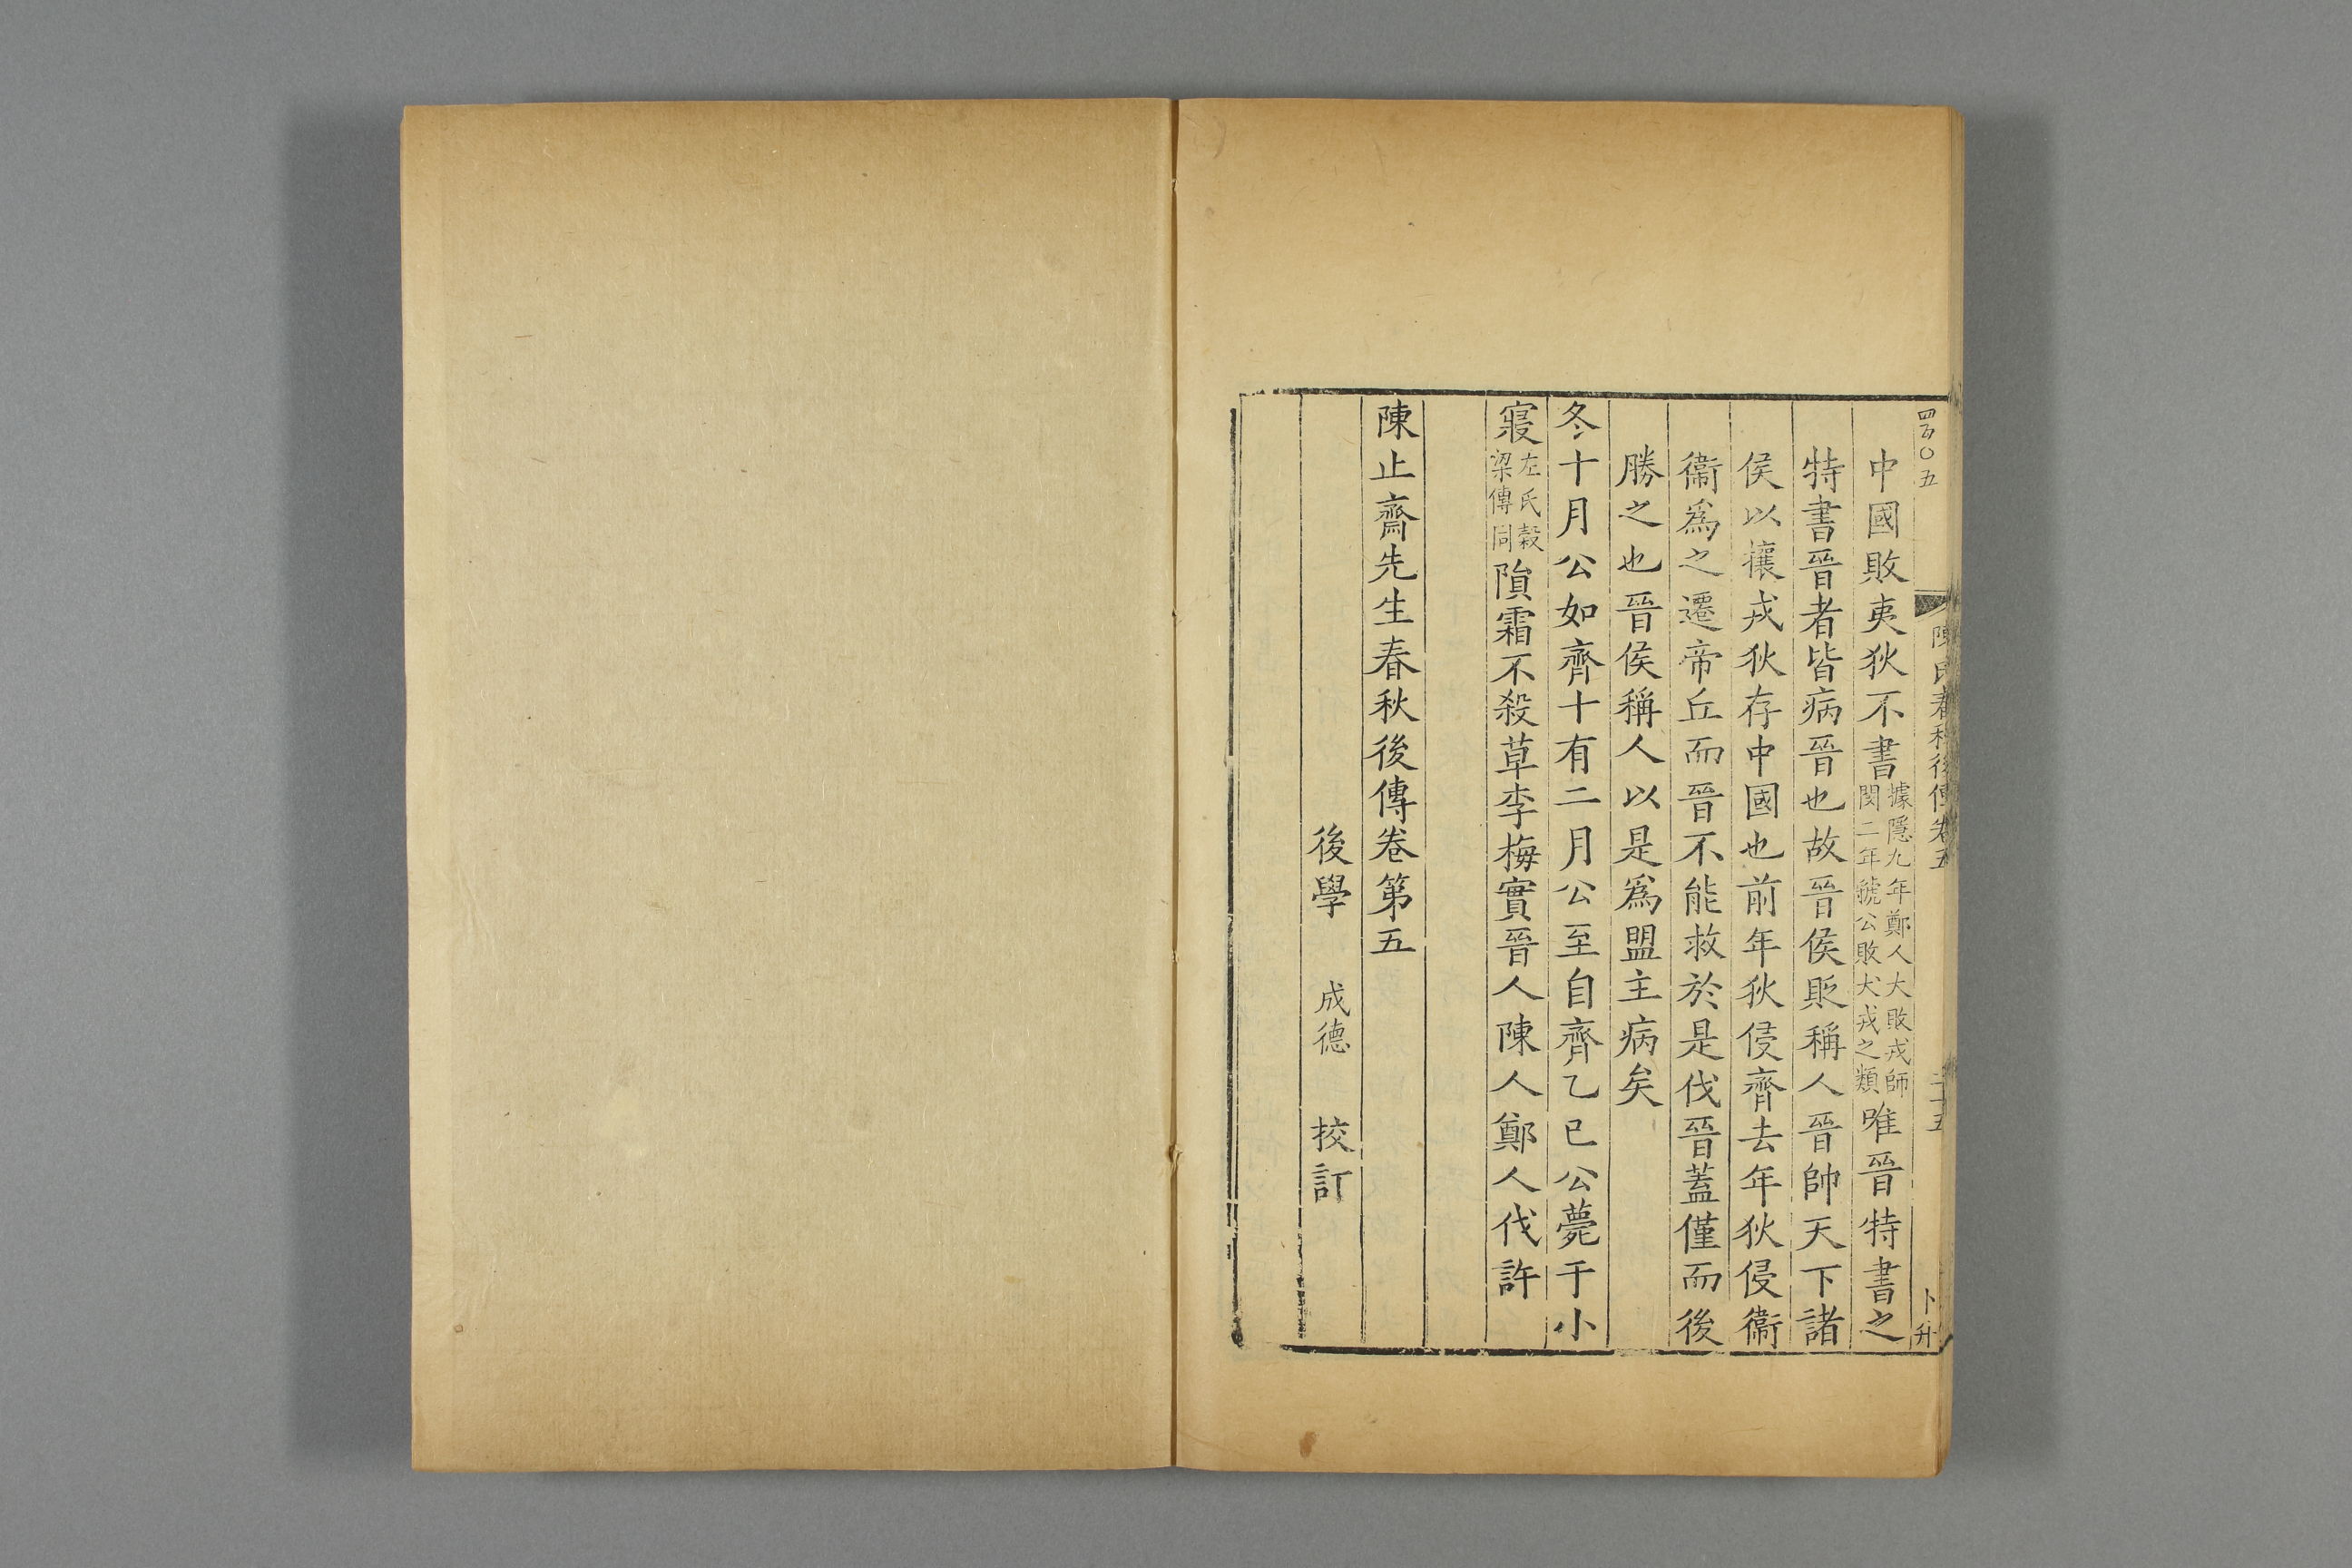 四百〇五
陳氏春秋後傳卷五
二十五
卜升
中國敗夷狄不書據隱九年鄭人大敗戎師閔二年虢公敗犬戎之類唯晉特書之
特書晉者皆病晉也故晉侯貶稱人晉帥天下諸
侯以攘戎狄存中國也前年狄侵齊去年狄侵衞
衞爲之遷帝丘而晉不能救於是伐晉蓋僅而後
勝之也晉侯稱人以是爲盟主病矣
冬十月公如齊十有二月公至自齊乙巳公薨于小
寢左氏穀梁傳同隕霜不殺草李梅實晉人陳人鄭人伐許
陳止齋先生春秋後傳卷第五
後學 成德 挍訂